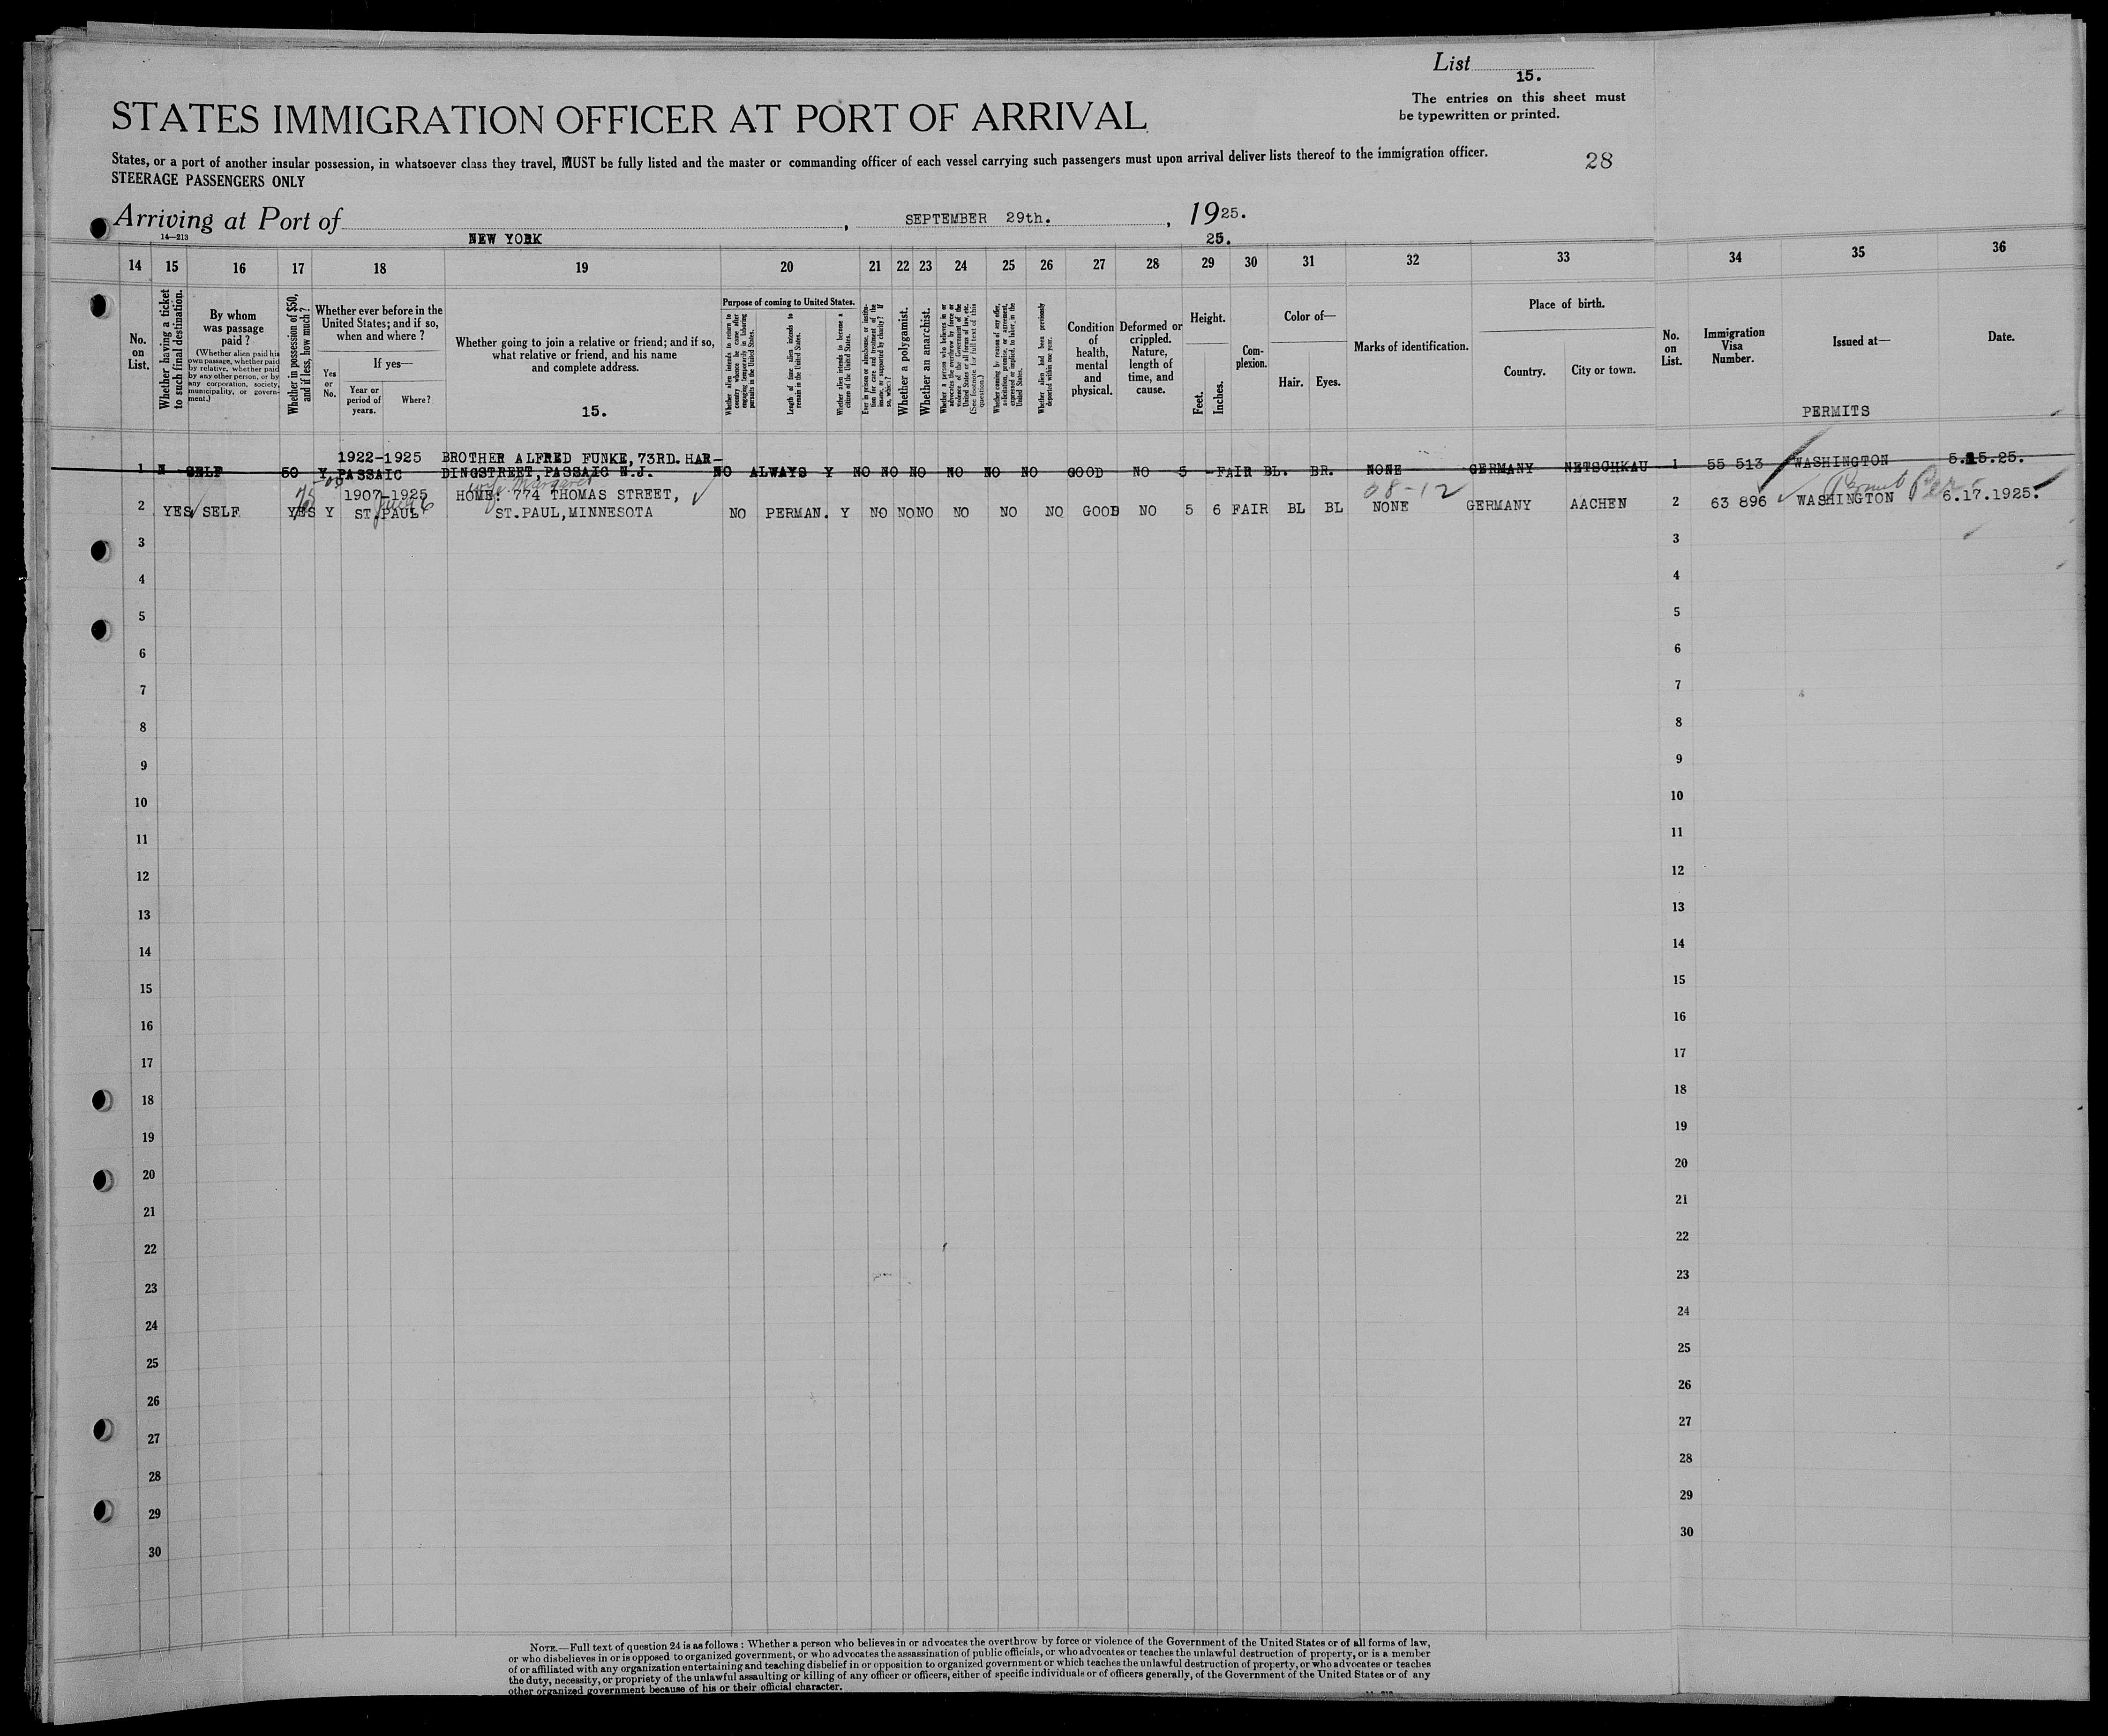 List 15.
The entries on this sheet must
be typewritten or printed.
STATES IMMIGRATION OFFICER AT PORT OF ARRIVAL
States, or a port of another insular possession, in whatsoever class they travel, MUST be fully listed and the master or commanding officer of each vessel carrying such passengers must upon arrival deliver lists thereof to the immigration officer.
28
STEERAGE PASSENGERS ONLY
Arriving at Port of NEW YORK, SEPTEMBER 29th., 1925.
25.
14—213
14 15 16 17 18 19 20 21 22 23 24 25 26 27 28 29 30 31 32 33 34 35 36
No. on List.
Whether having a ticket to such final destination.
By whom was passage paid?
(Whether alien paid his own passage, whether paid by relative, whether paid by any other person, or by any corporation, society, municipality, or government.)
Whether in possession of $50, and if less, how much?
Whether ever before in the United States; and if so, when and where?
Yes or No.
If yes—
Year or period of years.
Where?
Whether going to join a relative or friend; and if so, what relative or friend, and his name and complete address.
15.
Purpose of coming to United States.
Whether alien intends to return to country whence he came after engaging temporarily in laboring pursuits in the United States.
Length of time alien intends to remain in the United States.
Whether alien intends to become a citizen of the United States.
Ever in prison or almshouse, or institution for care and treatment of the insane, or supported by charity? If so, which?
Whether a polygamist.
Whether an anarchist.
Whether a person who believes in or advocates the overthrow by force or violence of the Government of the United States or all forms of law, etc. (See footnote for full text of this question.)
Whether coming by reason of any offer, solicitation, promise, or agreement, expressed or implied, to labor, in the United States.
Whether alien had been previously deported within one year.
Condition of health, mental and physical.
Deformed or crippled. Nature, length of time, and cause.
Height.
Feet.
Inches.
Complexion.
Color of—
Hair.
Eyes.
Marks of identification.
Place of birth.
Country.
City or town.
No. on List.
Immigration Visa Number.
Issued at—
PERMITS
Date.
1922-1925 BROTHER ALFRED FUNKE,73RD.HAR-
1 N SELF 50 Y PASSAIC DINGSTREET,PASSAIC N.J. NO ALWAYS Y NO NO NO NO NO NO GOOD NO 5 - FAIR BL. BR. NONE GERMANY NETSCHKAU 1 55 513 WASHINGTON 5.15.25.
wife Margaret
08-12
Permit Per
1907-1925 HOME: 774 THOMAS STREET,
2 YES SELF YES Y ST.PAUL ST.PAUL,MINNESOTA NO PERMAN. Y NO NO NO NO NO NO GOOD NO 5 6 FAIR BL BL NONE GERMANY AACHEN 2 63 896 WASHINGTON 6.17.1925.
3 3
4 4
5 5
6 6
7 7
8 8
9 9
10 10
11 11
12 12
13 13
14 14
15 15
16 16
17 17
18 18
19 19
20 20
21 21
22 22
23 23
24 24
25 25
26 26
27 27
28 28
29 29
30 30
NOTE.—Full text of question 24 is as follows: Whether a person who believes in or advocates the overthrow by force or violence of the Government of the United States or of all forms of law,
or who disbelieves in or is opposed to organized government, or who advocates the assassination of public officials, or who advocates or teaches the unlawful destruction of property, or is a member
of or affiliated with any organization entertaining and teaching disbelief in or opposition to organized government or which teaches the unlawful destruction of property, or who advocates or teaches
the duty, necessity, or propriety of the unlawful assaulting or killing of any officer or officers, either of specific individuals or of officers generally, of the Government of the United States or of any
other organized government because of his or their official character.